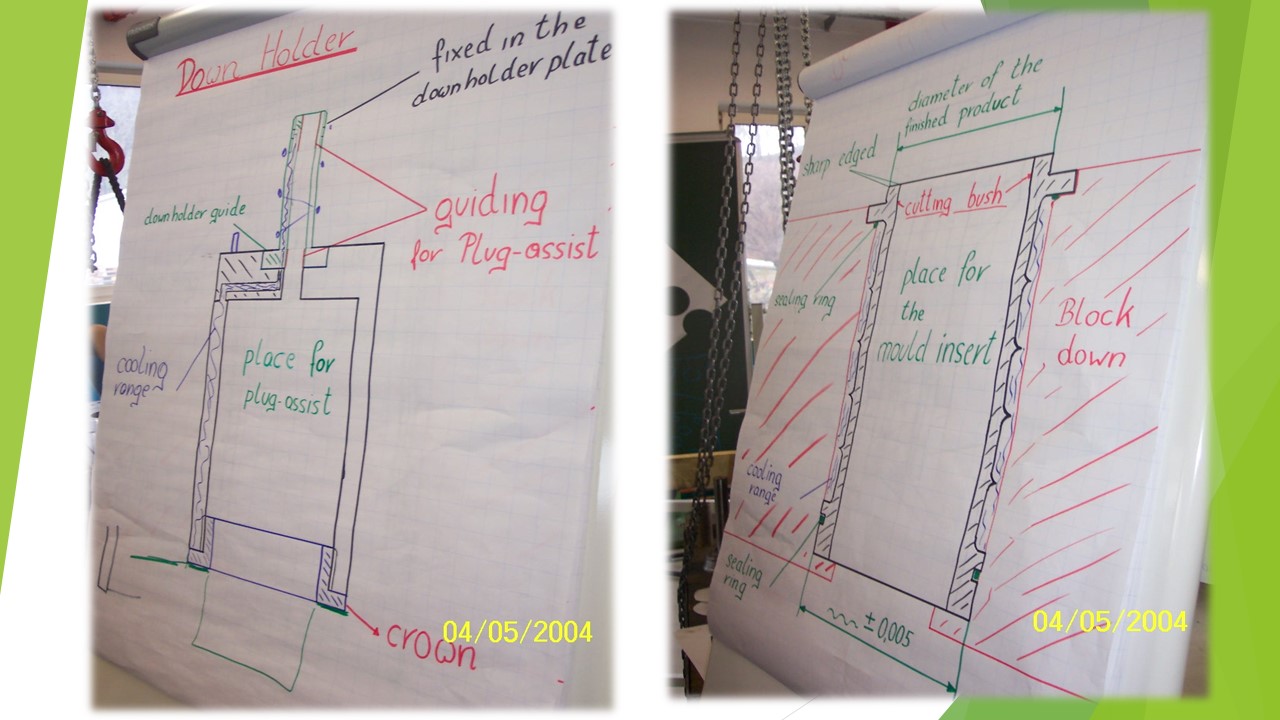 Down Holder
fixed in the
downholder plate
downholder guide
guiding
for Plug-assist
cooling
range
place for
plug-assist
crown
04/05/2004
diameter of the
finished product
sharp edged
cutting bush
place for
the
mould insert
sealing ring
Block
down
cooling
range
sealing
ring
± 0,005
04/05/2004